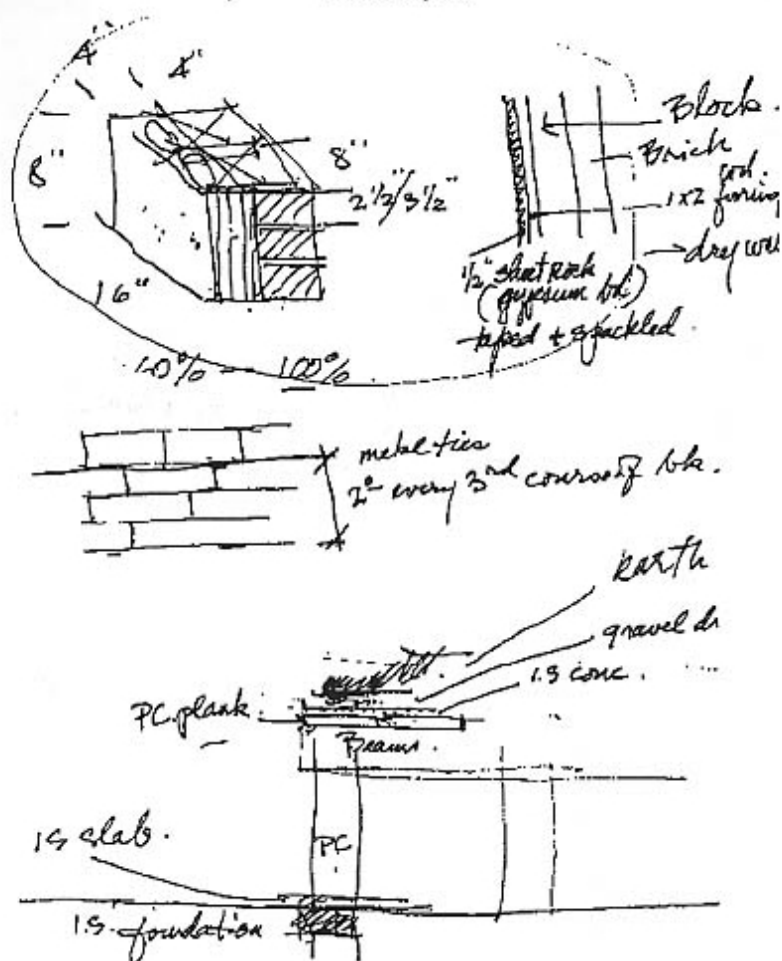 4" 4"
8"
8"
2 1/2"/3 1/2"
16"
10% — 100%
Block.
Brick
1x2 furring
→ dry
1/2" Sheet Rock
(gypsum bd)
taped + spackled
metal ties
every 3rd course of blk.
Earth
gravel
I.S conc.
PC. plank
Beams.
IS slab.
PC
I.S. foundation